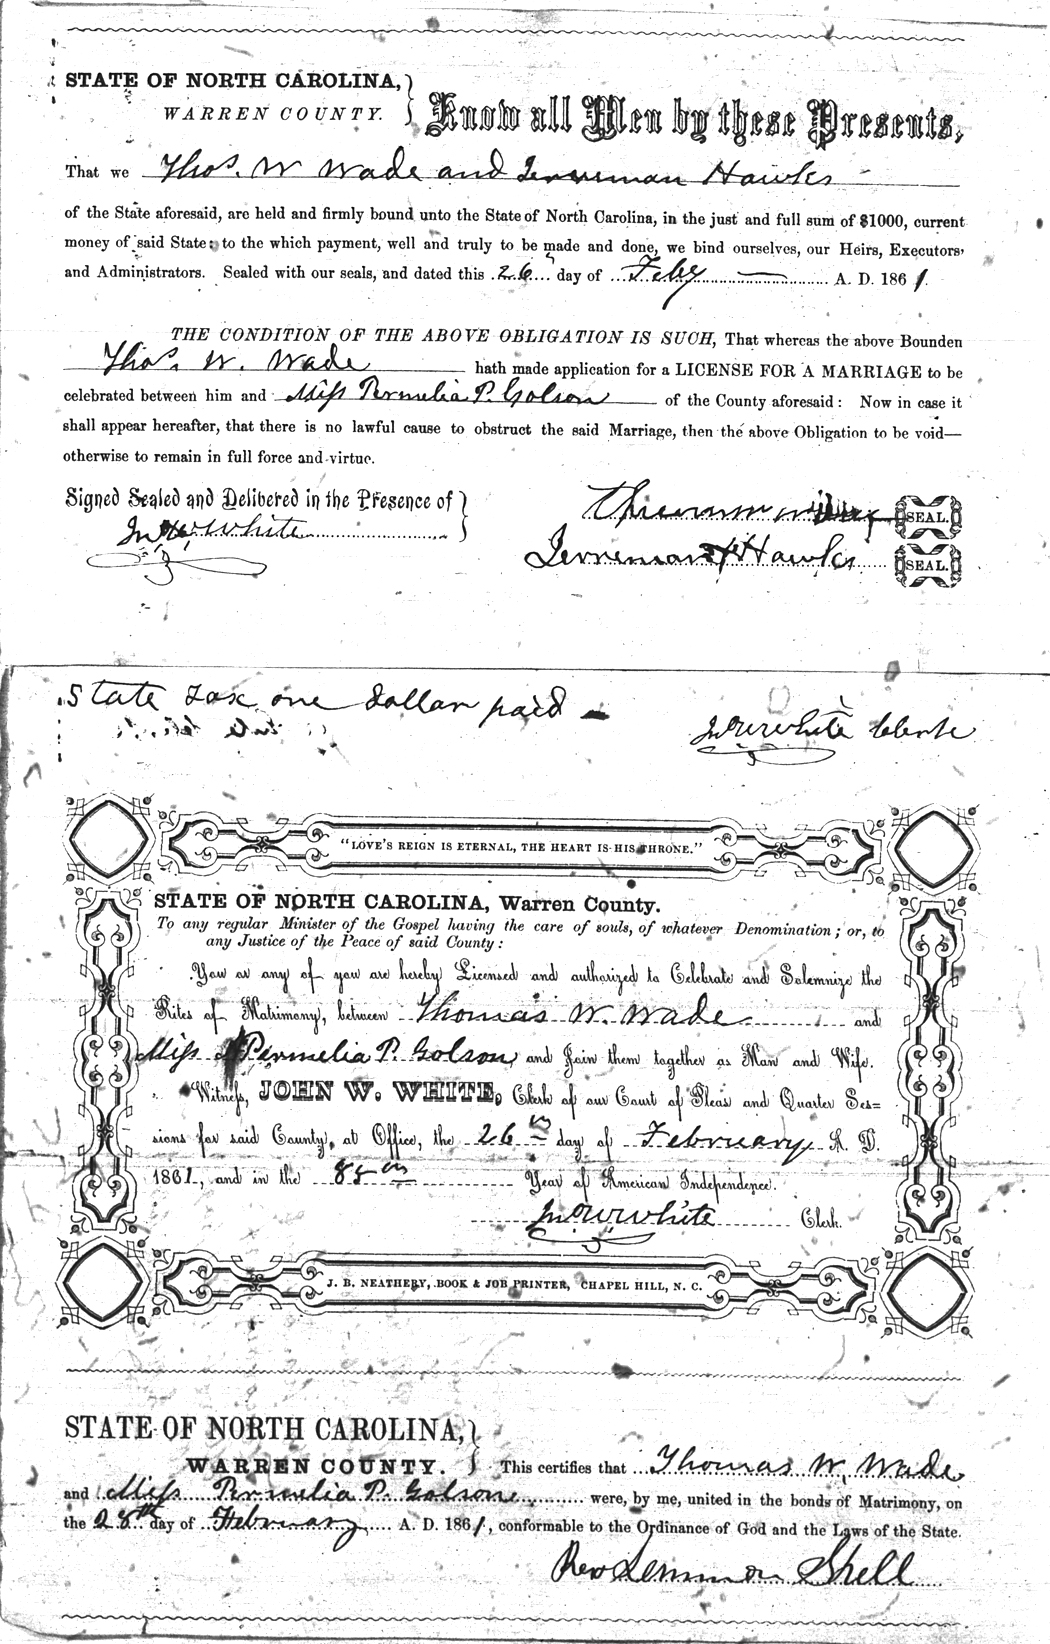 STATE OF NORTH CAROLINA,
WARREN COUNTY.
Know all Men by these Presents,
That we Thos. W Wade and Jerreman Hawks
of the State aforesaid, are held and firmly bound unto the State of North Carolina, in the just and full sum of $1000, current
money of said State: to the which payment, well and truly to be made and done, we bind ourselves, our Heirs, Executors,
and Administrators. Sealed with our seals, and dated this 26 day of Feby A. D. 1861.
THE CONDITION OF THE ABOVE OBLIGATION IS SUCH, That whereas the above Bounden
Thos. W. Wade hath made application for a LICENSE FOR A MARRIAGE to be
celebrated between him and Miss Permelia P. Golson of the County aforesaid: Now in case it
shall appear hereafter, that there is no lawful cause to obstruct the said Marriage, then the above Obligation to be void—
otherwise to remain in full force and virtue.
Signed Sealed and Delivered in the Presence of
Jno W White
SEAL.
Jerreman Hawks SEAL.
State tax one dollar paid -
Jno W White Clerk
"LOVE'S REIGN IS ETERNAL, THE HEART IS HIS THRONE."
STATE OF NORTH CAROLINA, Warren County.
To any regular Minister of the Gospel having the care of souls, of whatever Denomination; or, to
any Justice of the Peace of said County:
You or any of you are hereby Licensed and authorized to Celebrate and Solemnize the
Rites of Matrimony, between Thomas W. Wade and
Miss Permelia P. Golson and Join them together as Man and Wife.
Witness, JOHN W. WHITE, Clerk of our Court of Pleas and Quarter Ses=
sions for said County, at Office, the 26th day of February A. D.
1861, and in the 85th Year of American Independence.
Jno W White Clerk.
J. B. NEATHERY, BOOK & JOB PRINTER, CHAPEL HILL, N. C.
STATE OF NORTH CAROLINA,
WARREN COUNTY.
This certifies that Thomas W. Wade
and Miss Permelia P. Golson were, by me, united in the bonds of Matrimony, on
the 28th day of February A. D. 1861, conformable to the Ordinance of God and the Laws of the State.
Rev Lemmon Shell